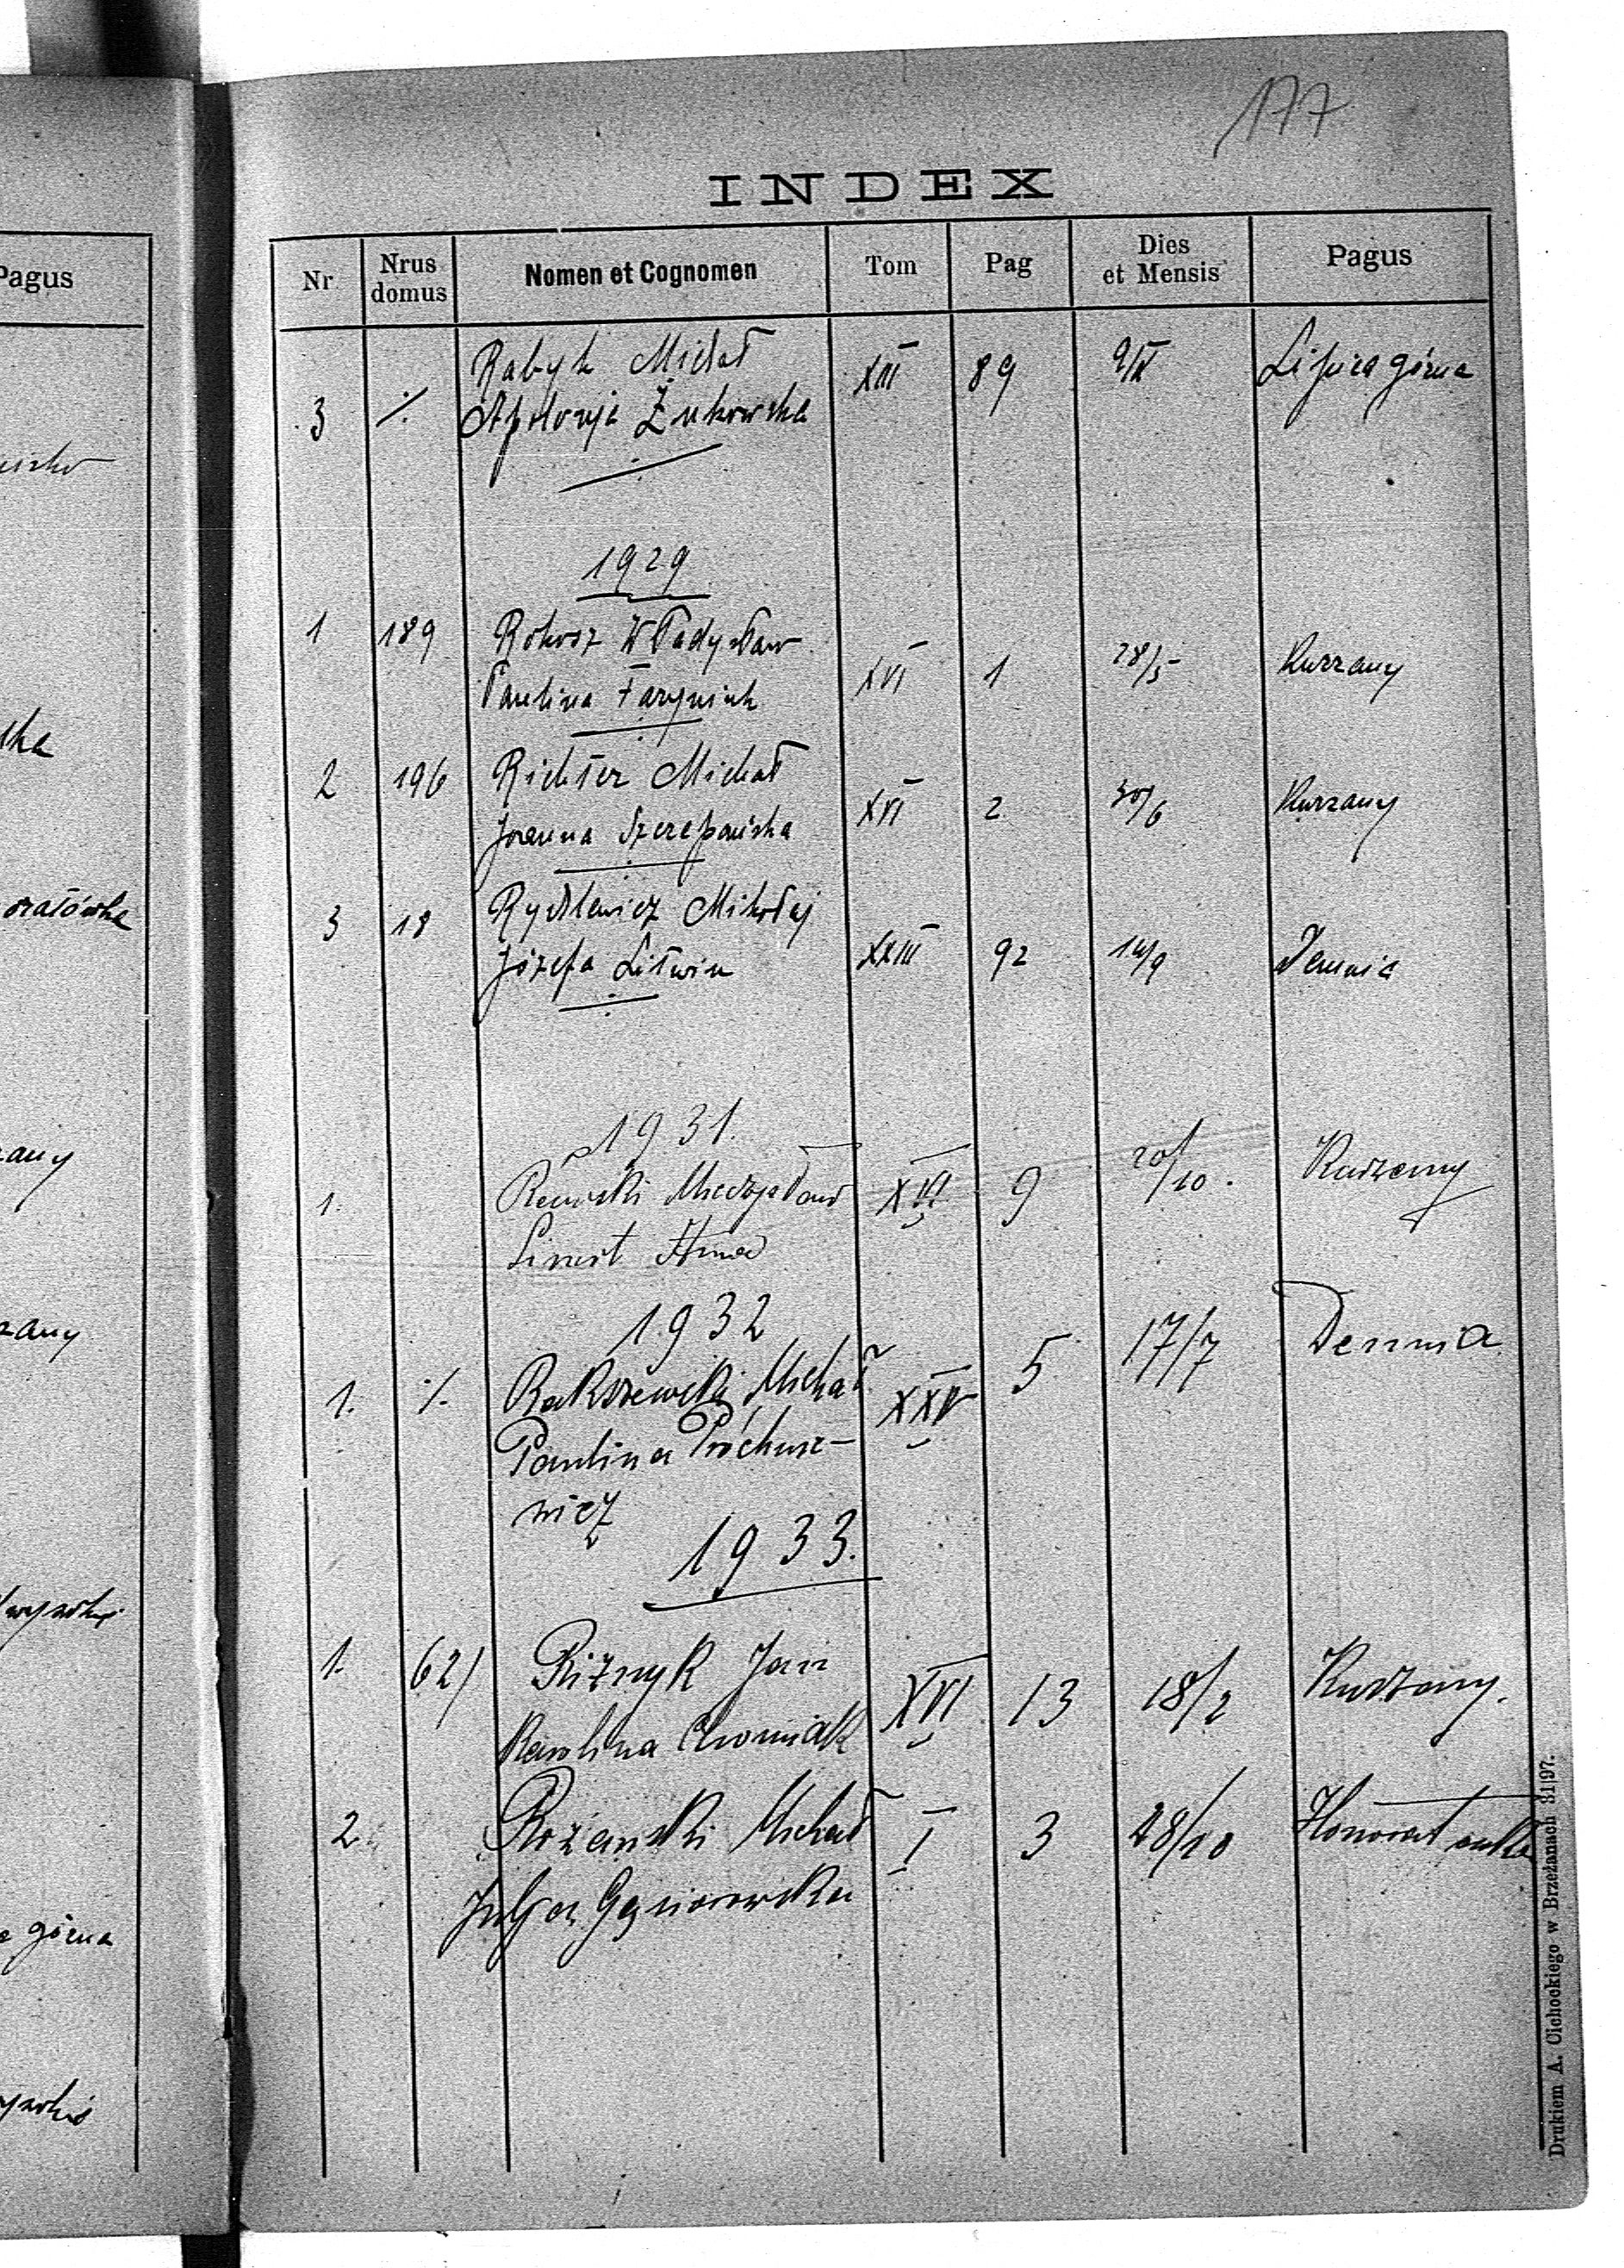 177
INDEX
Pagus
Nr Nrus domus Nomen et Cognomen Tom Pag Dies et Mensis Pagus
Rabyk Michał XIII 89 9/IX Lipica górna
3 ./. Apolonja Żukowska
1929
1 189 Rokosz Władysław
Paulina Faryniuk XVI 1 28/5 Kurzany
2 196 Richter Michał
Joanna Szczepańska XVI 2 30/6 Kurzany
3 18 Rydlewicz Mikołaj
Józefa Litwin XXIII 92 14/9 Demnia
1931.
1. Mieczysław XVI 9 20/10. Kurzany
Anna
1932
1. ./. Rakszewski Michał XXV 5 17/7 Demnia
Paulina Próchnie-
wicz
1933.
1. 62/ Riznyk Jan XVI 13 18/2 Kurzany.
Karolina Chomiak
2. Rożański Michał I 3 28/10 Honoratówka
Julja Gąsiorowska
Drukiem A. Cichockiego w Brzeżanach 31|97.